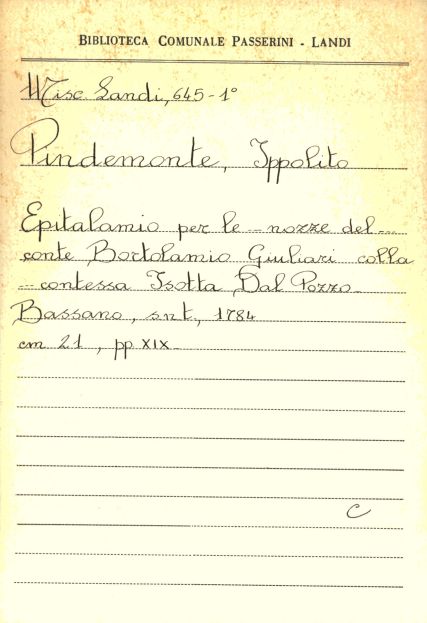 BIBLIOTECA COMUNALE PASSERINI - LANDI
Misc. Landi, 645-1°
Pindemonte, Ippolito
Epitalamio per le nozze del
conte Bortolamio Giuliari colla
contessa Isotta Dal Pozzo
Bassano, s.n.t., 1784
cm 21, pp. XIX
C